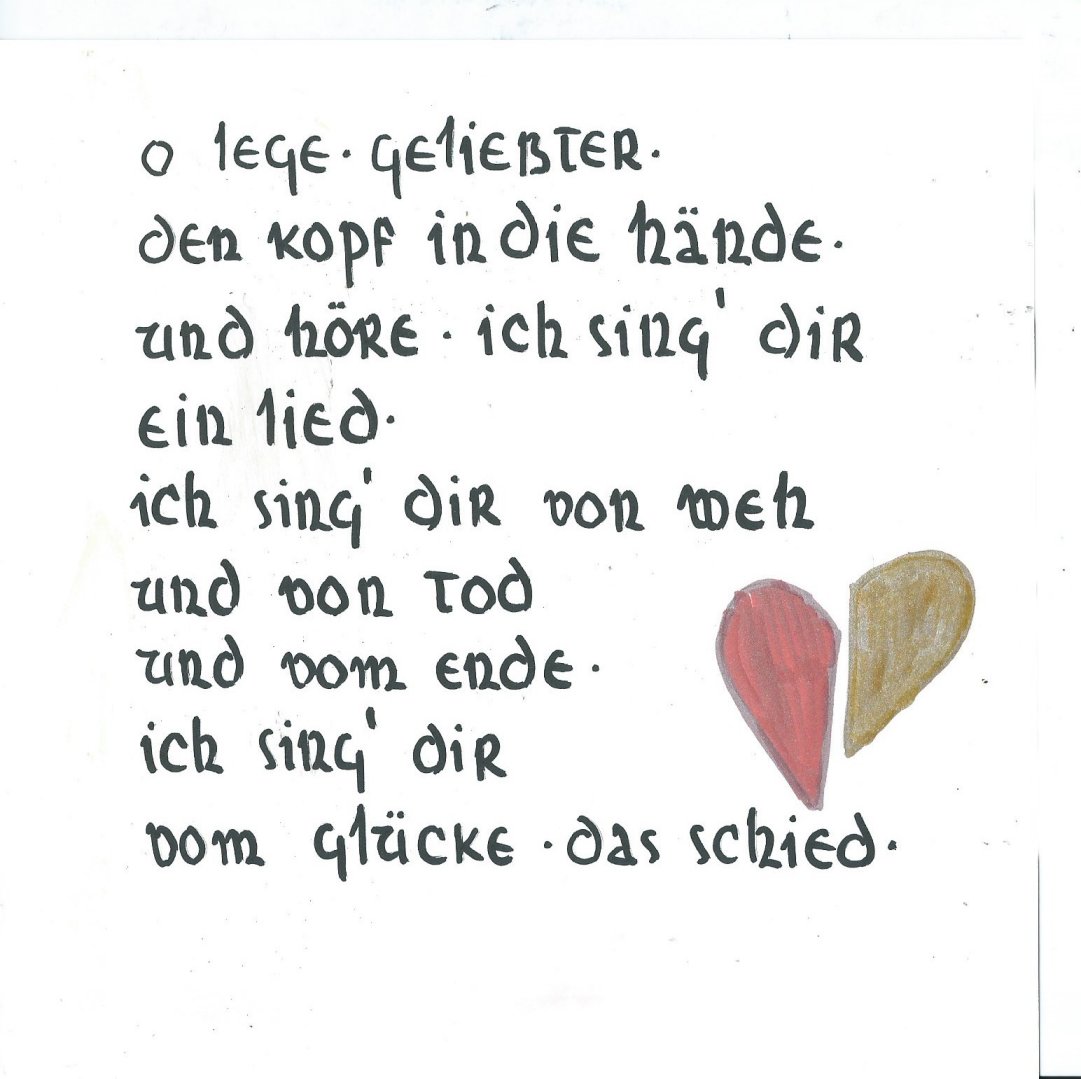 o lege · geliebter ·
den kopf in die hände ·
und höre · ich sing' dir
ein lied ·
ich sing' dir von weh
und von tod
und vom ende ·
ich sing' dir
vom glücke · das schied ·